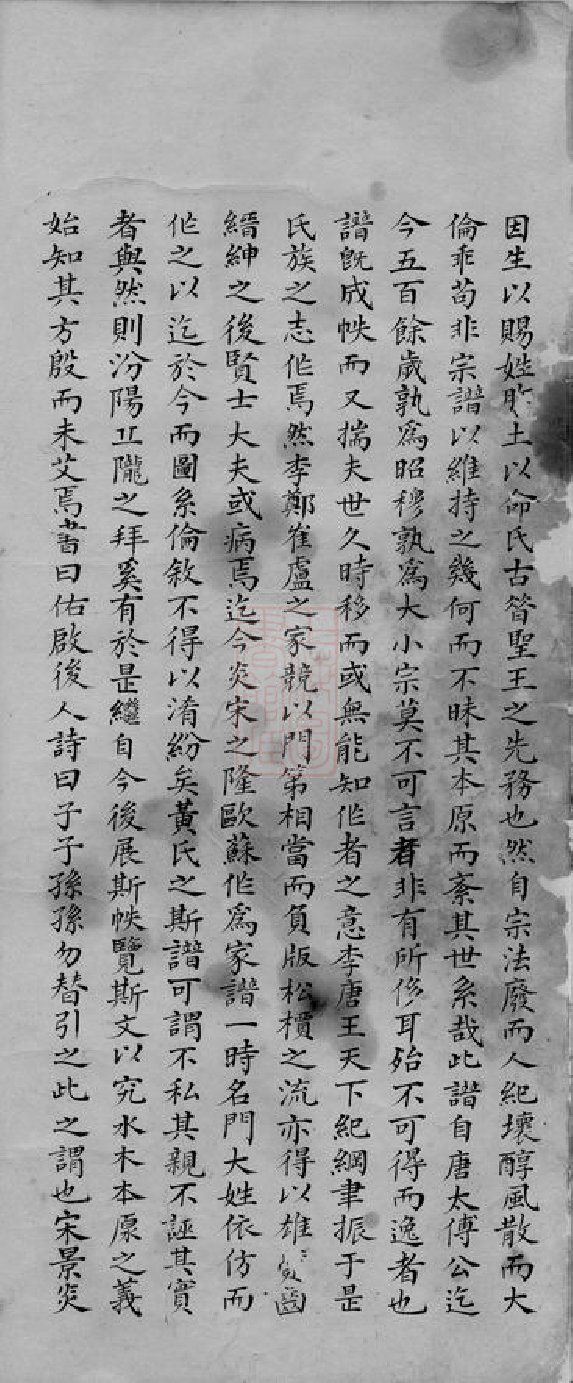 因生以賜姓胙土以命氏古昝聖王之先務也然自宗法廢而人紀壞醇風散而大
倫乖苟非宗譜以維持之幾何而不昧其本原而紊其世系哉此譜自唐太傅公迄
今五百餘歲孰為昭穆孰為大小宗莫不可言者非有所侈耳殆不可得而逸者也
譜既成帙而又揣夫世久時移而或無能知作者之意李唐王天下紀綱聿振于是
氏族之志作焉然李鄭崔盧之家競以門第相當而負版松檟之流亦得以雄圖
縉紳之後賢士大夫或病焉迄今炎宋之隆歐蘇作為家譜一時名門大姓依仿而
作之以迄於今而圖系倫敘不得以淆紛矣黃氏之斯譜可謂不私其親不誣其實
者與然則汾陽丘隴之拜奚有於是繼自今後展斯帙覽斯文以究水木本原之義
始知其方殷而未艾焉書曰佑啟後人詩曰子子孫孫勿替引之此之謂也宋景炎